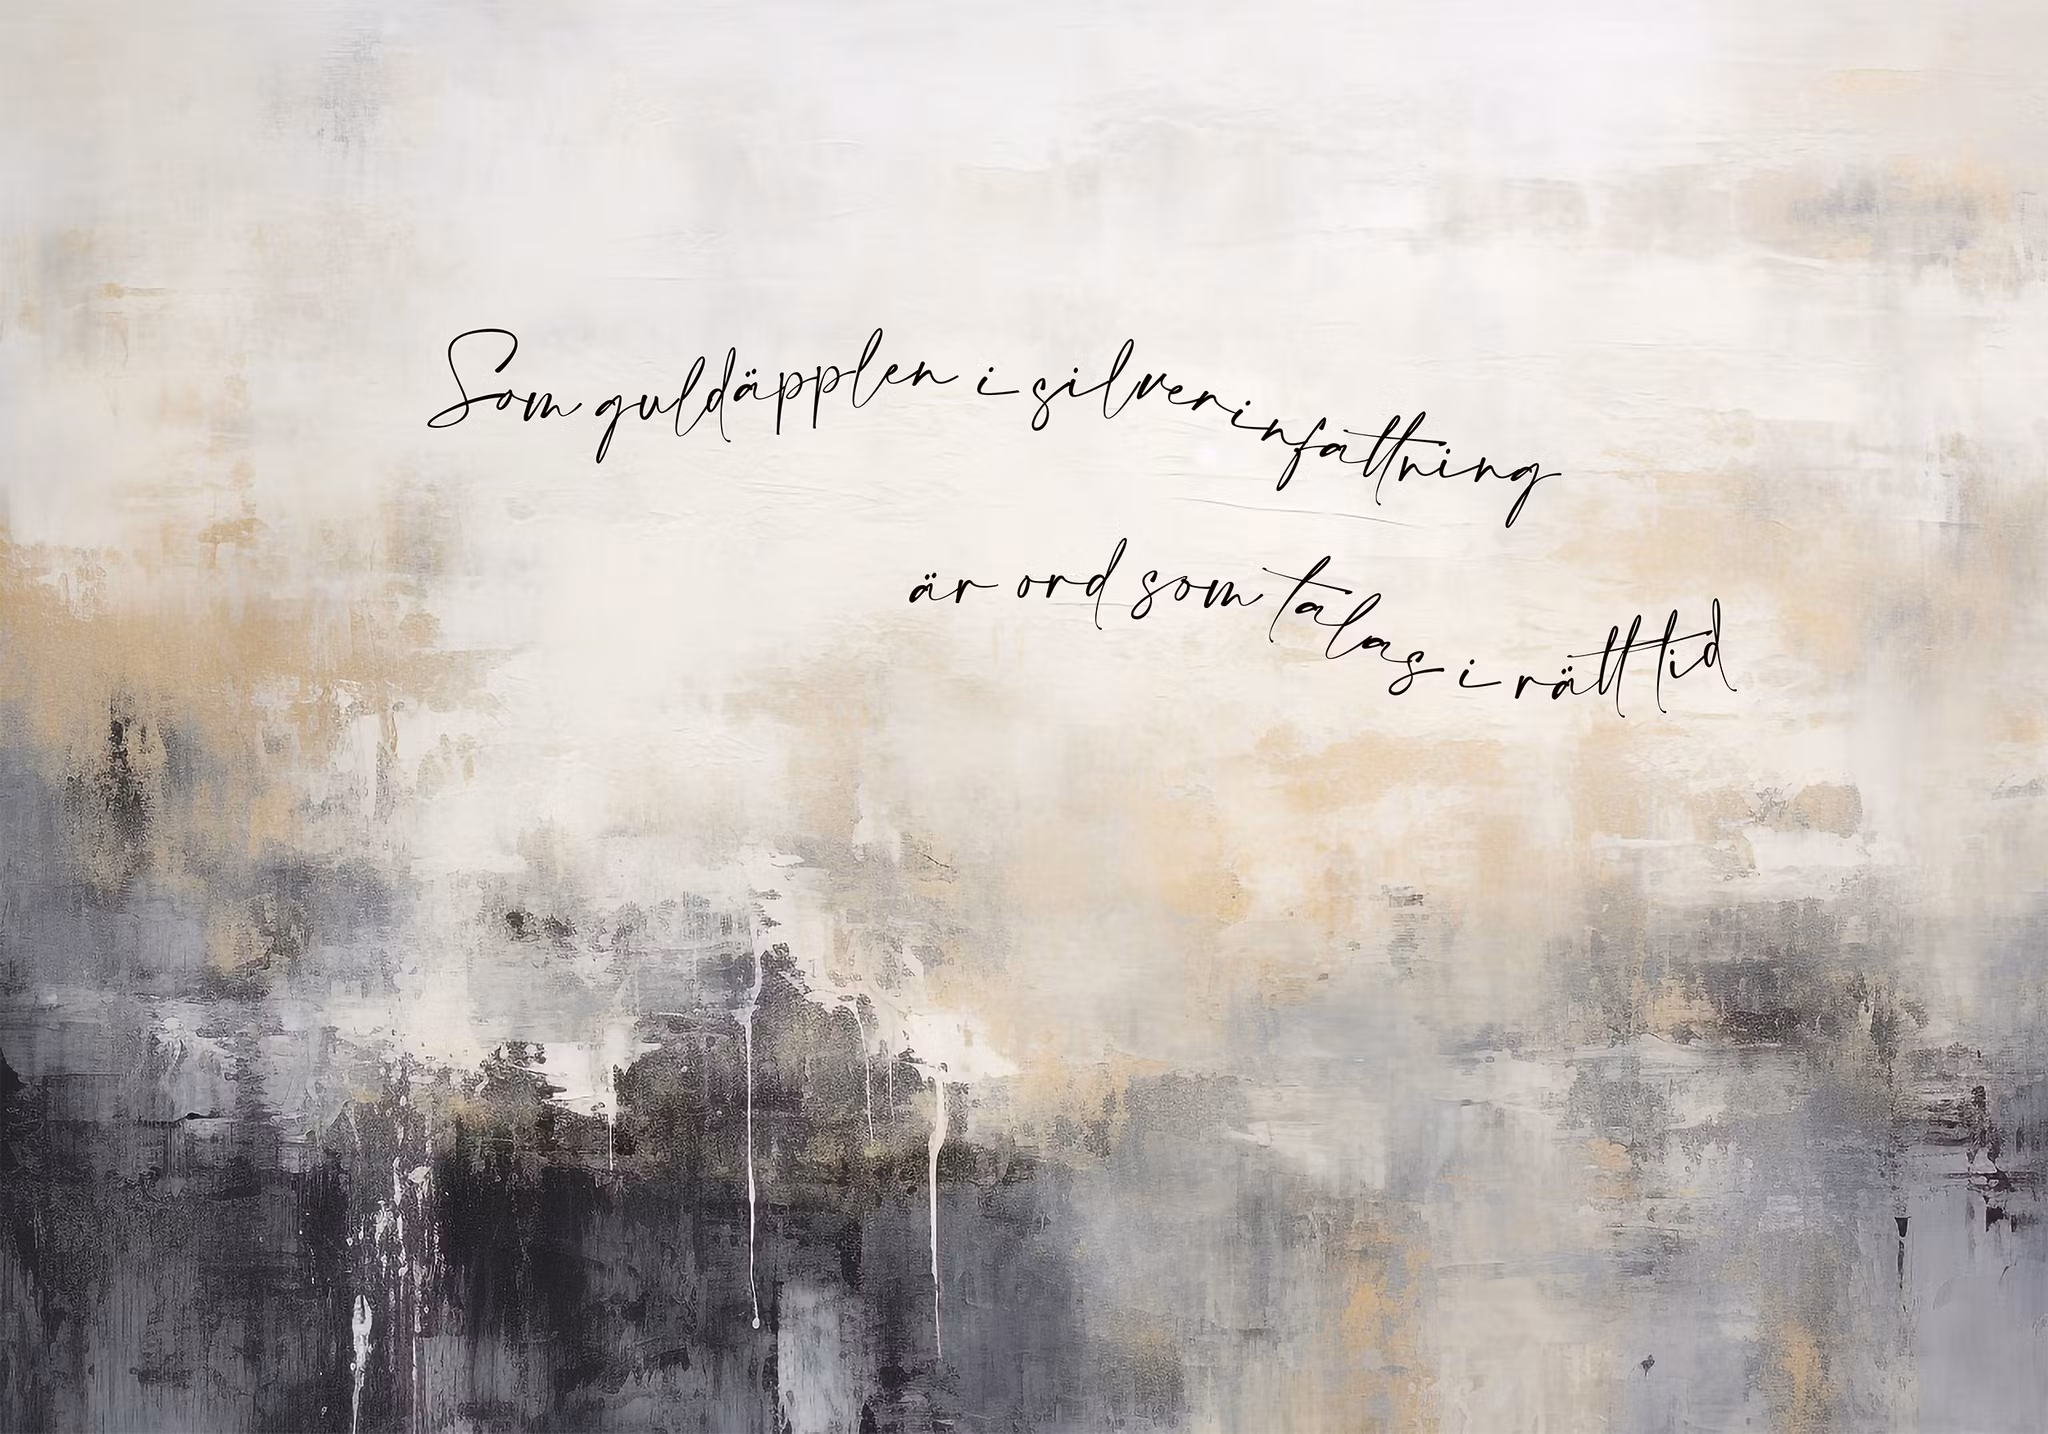 Som guldäpplen i silverinfattning
är ord som talas i rätt tid